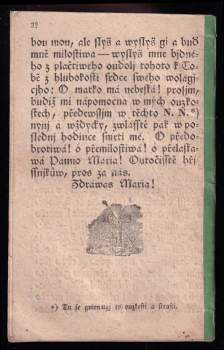 22
bou mou, ale slyš a wyslyš gi a bud
mně milostiwa — wyslyš mne bjdné-
ho z plačtiwého oudolj tohoto k To-
bě z hlubokosti srdce swého wolagj-
cjho: O matko má nebeská! prosjm,
budiž mi nápomocna w mých ouzko-
stech, předewssjm w těchto N. N.*)
nynj a wždycky, zwlásstě pak w po-
slednj hodince smrti mé. O předo-
brotiwá! ó přemilostiwá! ó přelaska-
wá Panno Maria! Outočisstě hřj-
ssnjkůw, pros za nás.
Zdráwas Maria!
*) Tu se gmenugj ty ouzkosti a strasti.